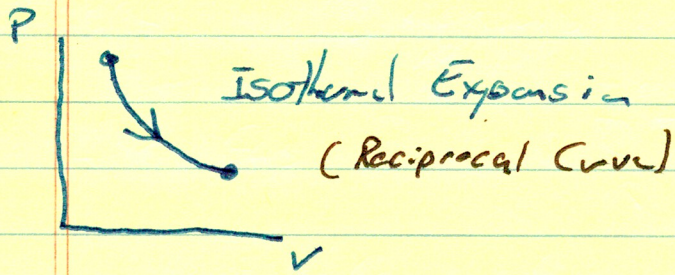 P
Isothermal Expansion
(Reciprocal Curve)
V